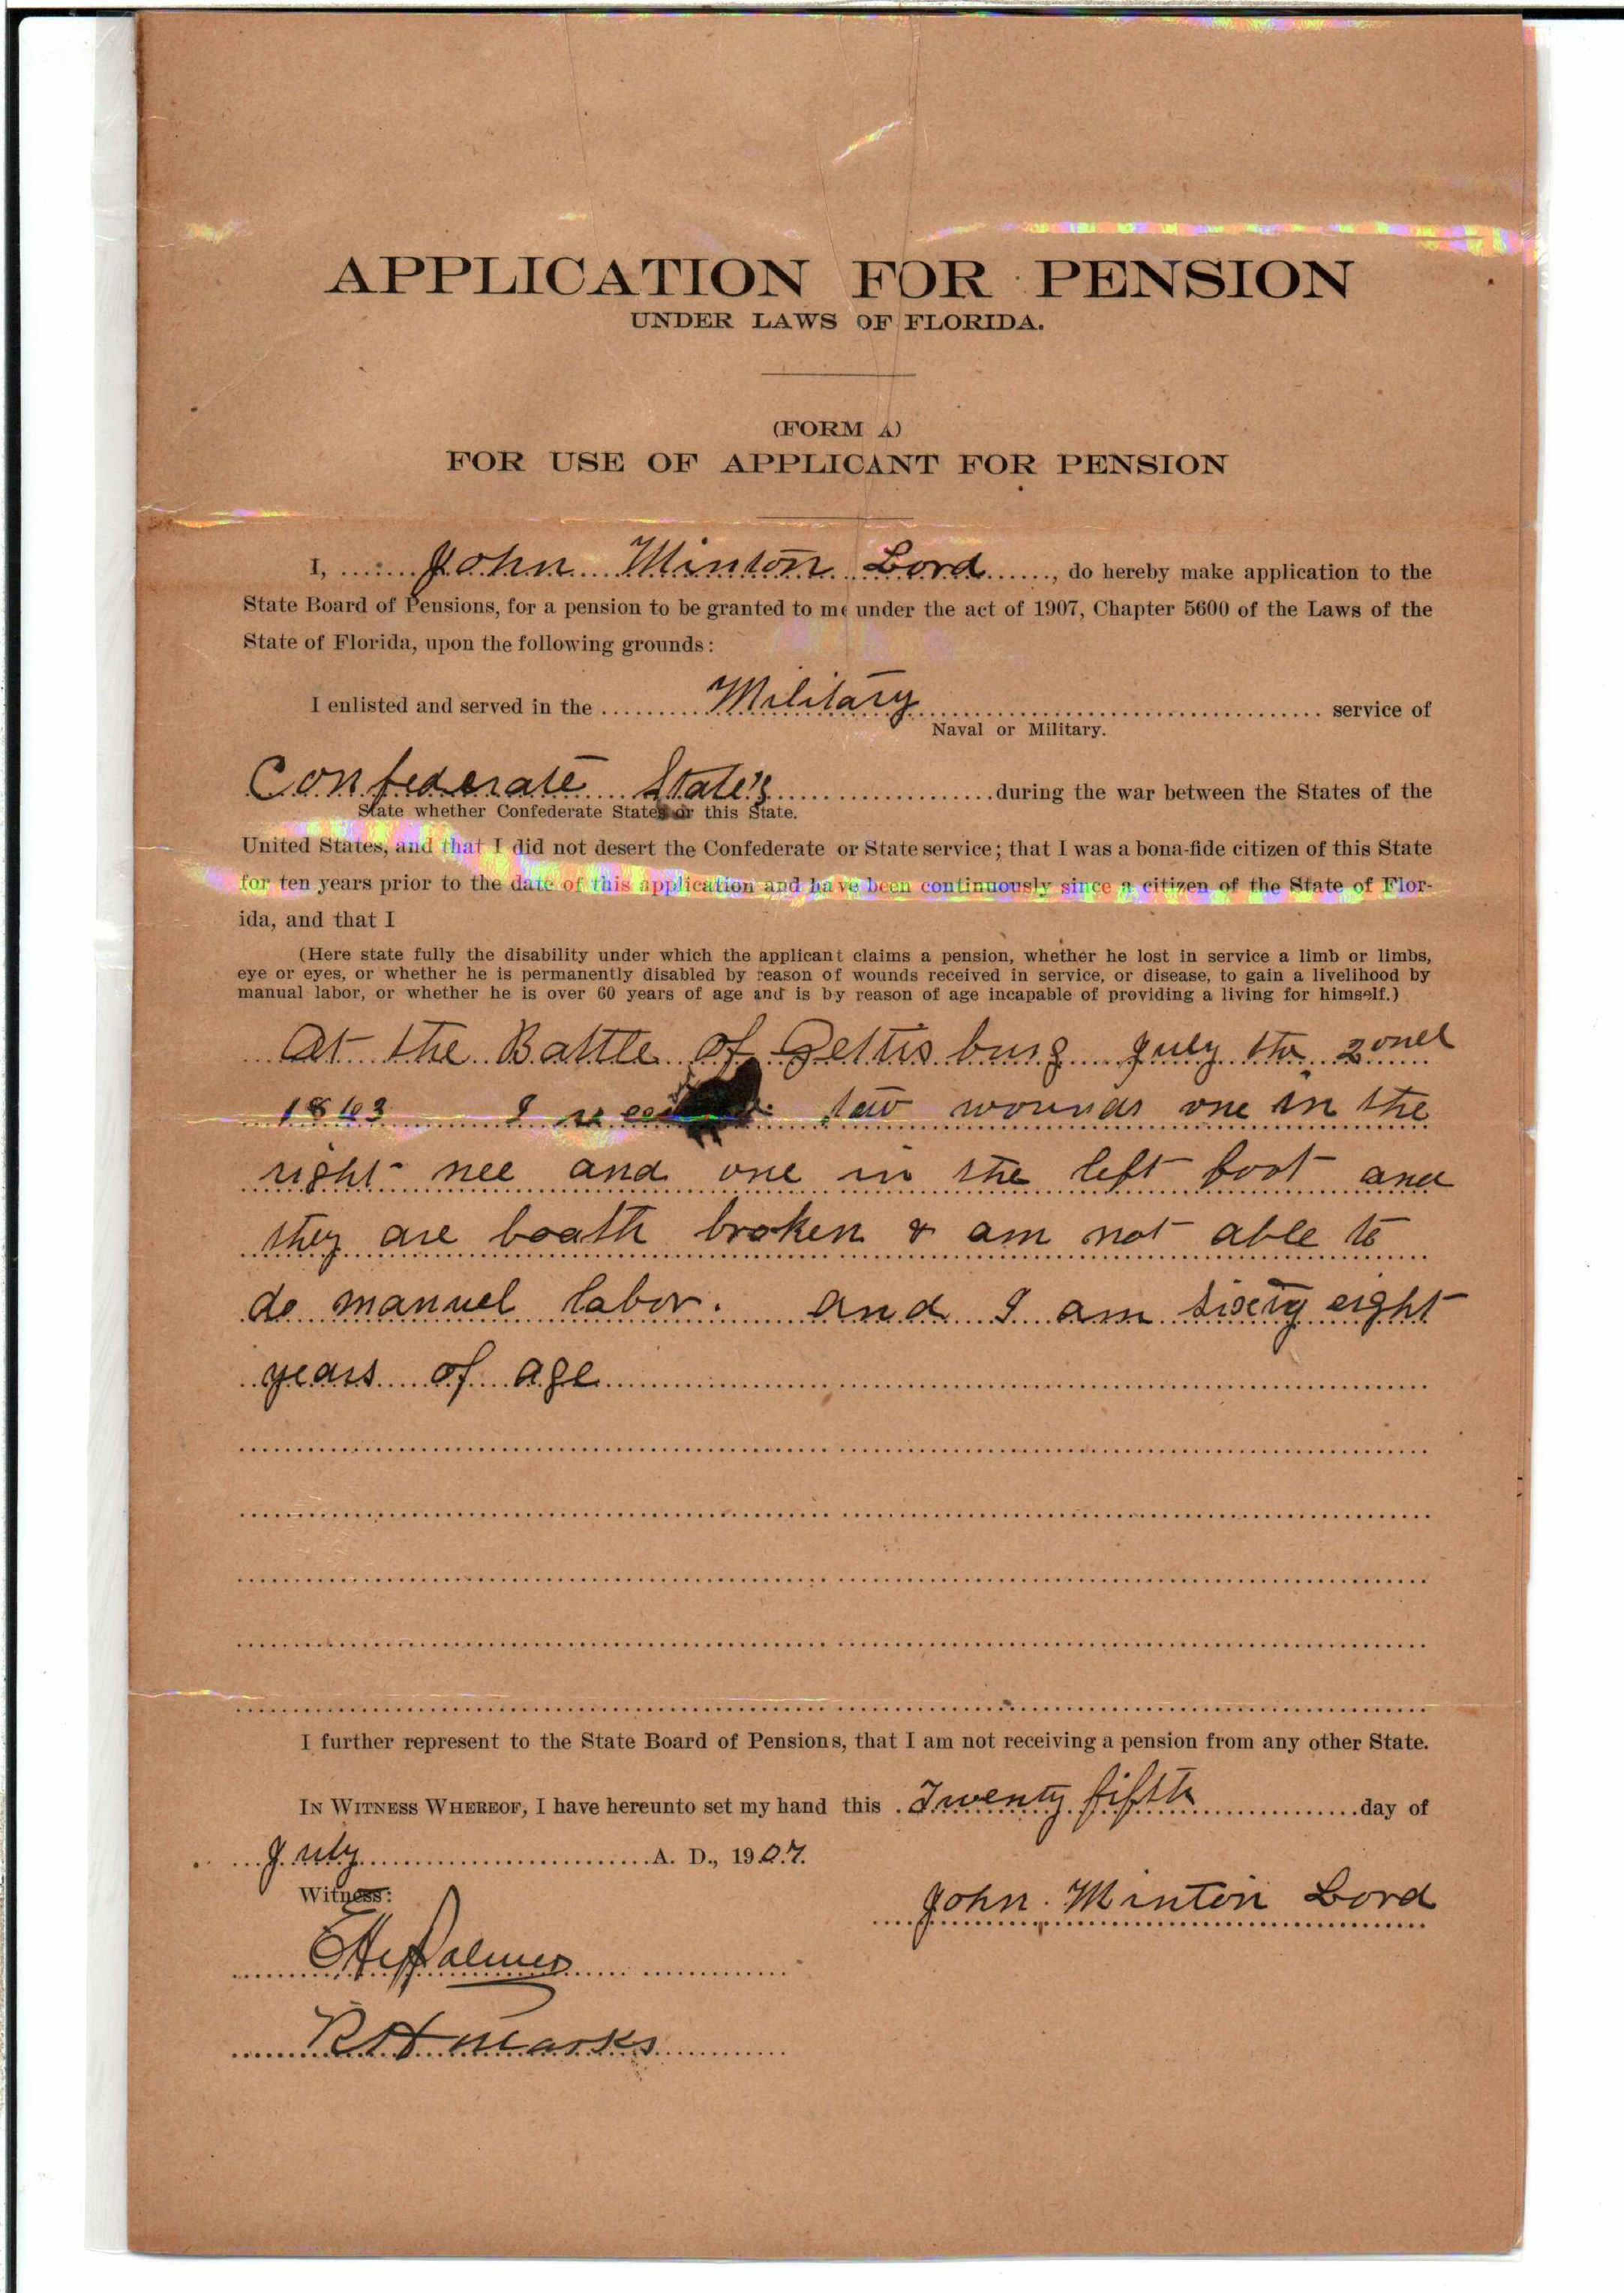 APPLICATION FOR PENSION
UNDER LAWS OF FLORIDA.
(FORM A)
FOR USE OF APPLICANT FOR PENSION
I, John Minton Lord, do hereby make application to the
State Board of Pensions, for a pension to be granted to me under the act of 1907, Chapter 5600 of the Laws of the
State of Florida, upon the following grounds:
I enlisted and served in the Military service of
Naval or Military.
Confederate State's during the war between the States of the
State whether Confederate States or this State.
United States, and that I did not desert the Confederate or State service; that I was a bona-fide citizen of this State
for ten years prior to the date of this application and have been continuously since a citizen of the State of Flor-
ida, and that I
(Here state fully the disability under which the applicant claims a pension, whether he lost in service a limb or limbs,
eye or eyes, or whether he is permanently disabled by reason of wounds received in service, or disease, to gain a livelihood by
manual labor, or whether he is over 60 years of age and is by reason of age incapable of providing a living for himself.)
At the Battle of Gettisburg July the 2ond
1863 I wounds one in the
right nee and one in the left foot and
they are boath broken & am not able to
do manuel labor. and I am sixty eight
years of age
I further represent to the State Board of Pensions, that I am not receiving a pension from any other State.
IN WITNESS WHEREOF, I have hereunto set my hand this Twenty fifth day of
July A. D., 1907.
Witness:
John Minton Lord
Palmer
R H Marks